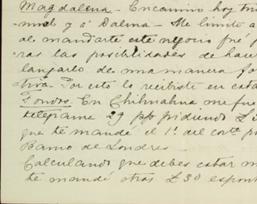 Magdalena - Encamino hoy tru
mil y á Dalma - Me limité a
al mandarte este negocio fué p
ras las posibilidades de hace
lanzarlo de una manera
Por esto lo recibiste en esta
Fondos. En Chihuahua me fue
telegrama 29 ppdo pidiendo £
que te mandé el 1º del corte p
Banco de Londres
Calculando que debes estar m
te mandé otras £30 espont